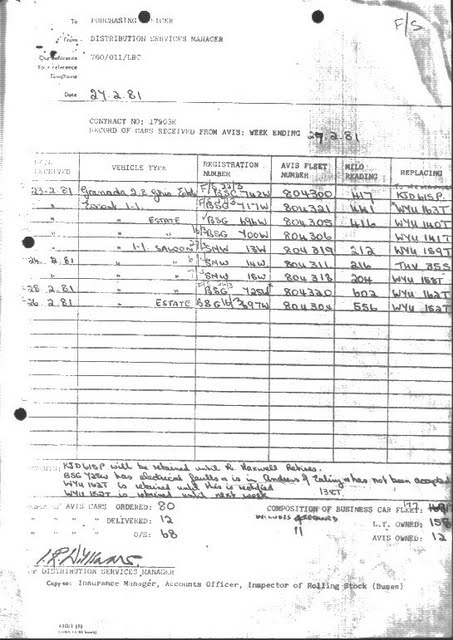 To PURCHASING OFFICER
From DISTRIBUTION SERVICES MANAGER
Our Reference 760/011/LBC
Your reference
Telephone
F/S
Date 27.2.81
CONTRACT NO: 17903K
RECORD OF CARS RECEIVED FROM AVIS: WEEK ENDING 27.2.81
DATE RECEIVED VEHICLE TYPE REGISTRATION NUMBER AVIS FLEET NUMBER MILO READING REPLACING
23.2.81 Granada 2.8 BSG 742W 804300 417 KJD 615P
" Escort 1.1. BSG 717W 804321 441 WYU 163T
" " ESTATE BSG 696W 804305 416 WYU 140T
" " " BSG 700W 804306 WYU 141T
" " 1.1. SALOON SMW 13W 804319 212 WYU 159T
24.2.81 " " SMW 14W 804311 216 THV 35S
" " " SMW 15W 804318 204 WYU 158T
25.2.81 " BSG 725W 804320 602 WYU 162T
26.2.81 " ESTATE BSG 697W 804304 556 WYU 152T
KJD 615P will be retained until R. Maxwell Retires.
BSG 725W has electrical faults & is in Andrews of Ealing & has not been accepted
WYU 162T is retained until this is rectified
WYU 152T is retained until next week 138T.
OF AVIS CARS ORDERED: 80
" " " DELIVERED: 12
" " " O/S: 68
COMPOSITION OF BUSINESS CAR FLEET: 172
L.T. OWNED: 158
AVIS OWNED: 12
11
DISTRIBUTION SERVICES MANAGER
Copies: Insurance Manager, Accounts Officer, Inspector of Rolling Stock (Buses)